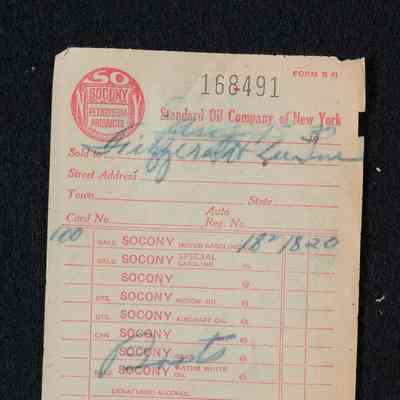 FORM B 41
168491
SO
SOCONY
PETROLEUM
PRODUCTS
NY
Standard Oil Company of New York
Sold to
Street Address
Town State
Auto
Card No. Reg. No.
100 GALS. SOCONY MOTOR GASOLINE @ 18² 18.20
GALS. SOCONY SPECIAL GASOLINE @
SOCONY @
QTS. SOCONY MOTOR OIL @
QTS. SOCONY AIRCRAFT OIL @
CAN SOCONY @
SOCONY @
SOCONY WATER WHITE OIL @
DENATURED ALCOHOL